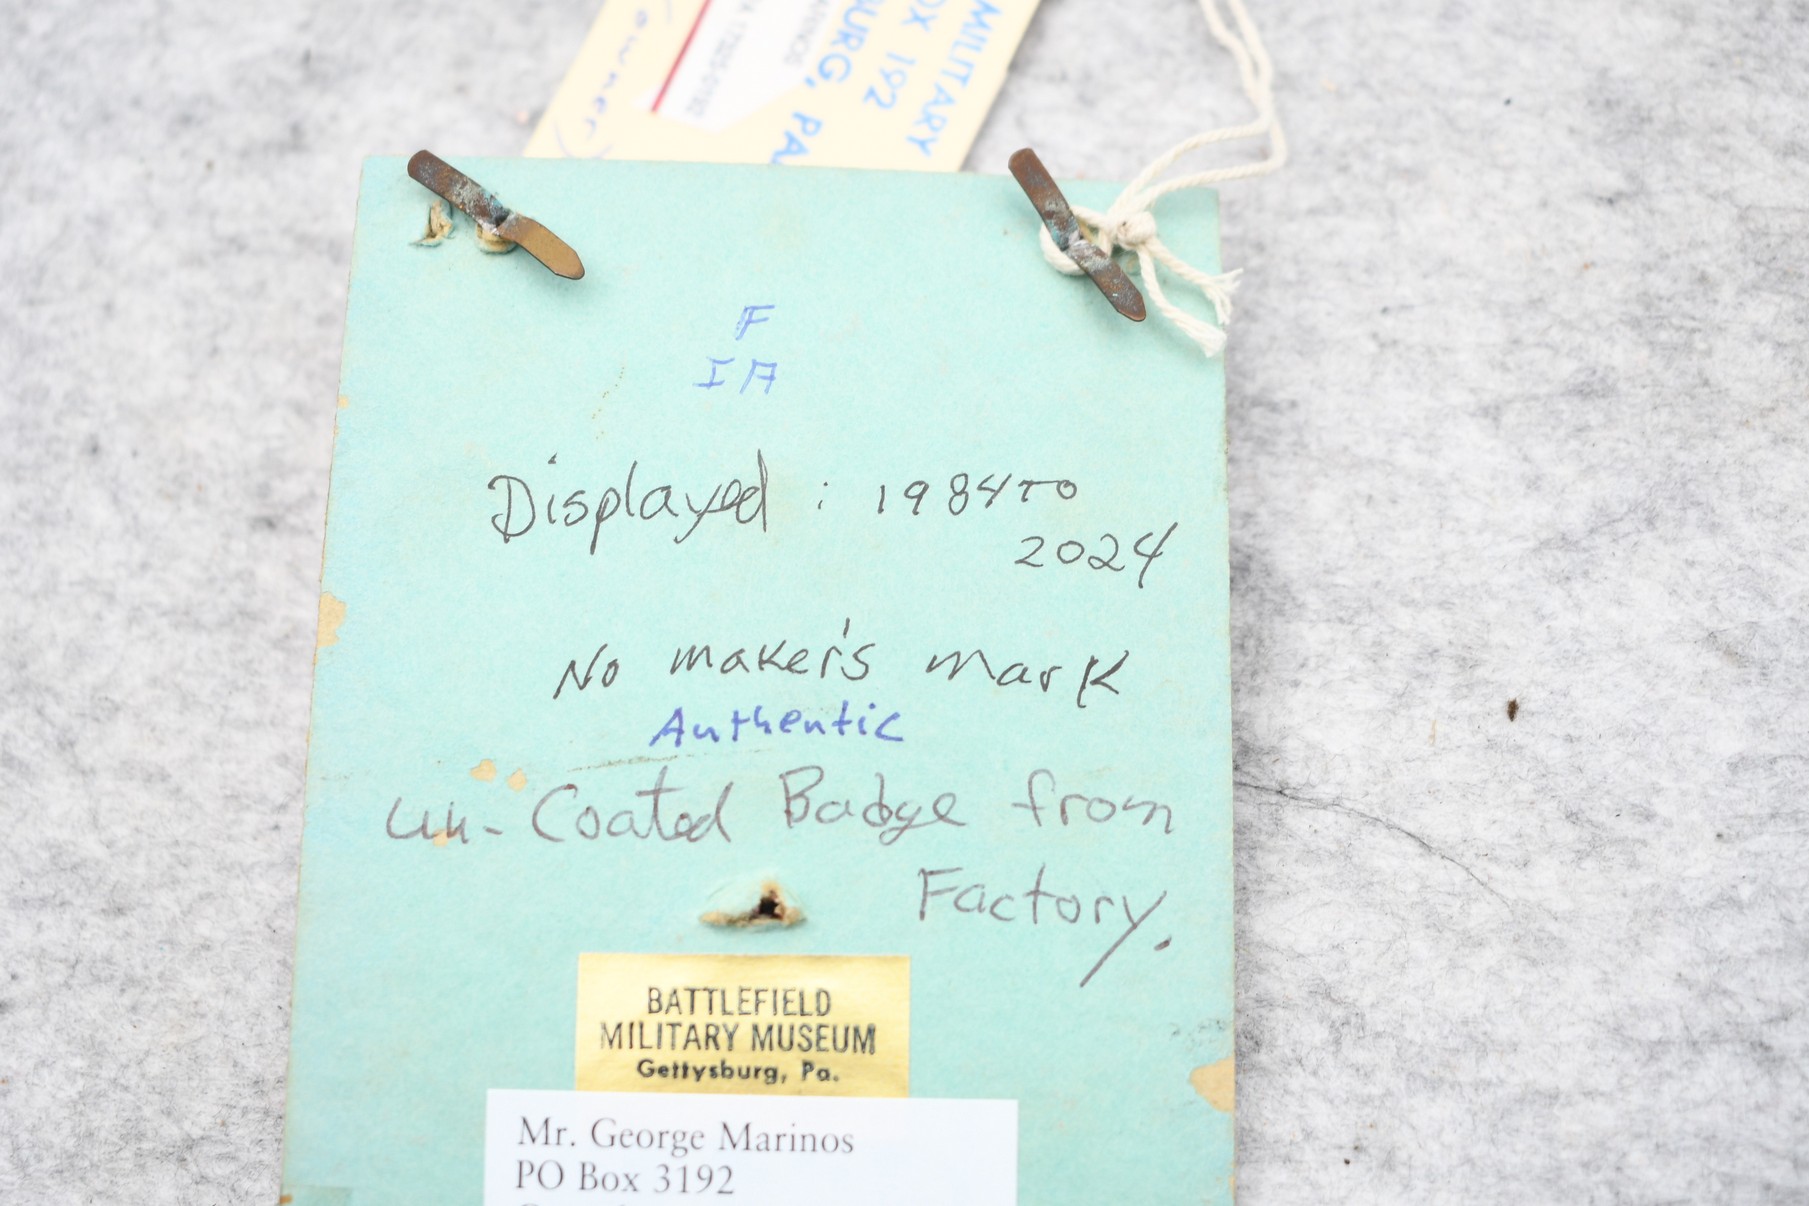 owner)
MILITARY
OX 192
BURG, PA
F
IA
Displayed : 1984 TO
2024
No maker's mark
Authentic
un-Coated Badge from
Factory.
BATTLEFIELD
MILITARY MUSEUM
Gettysburg, Pa.
Mr. George Marinos
PO Box 3192